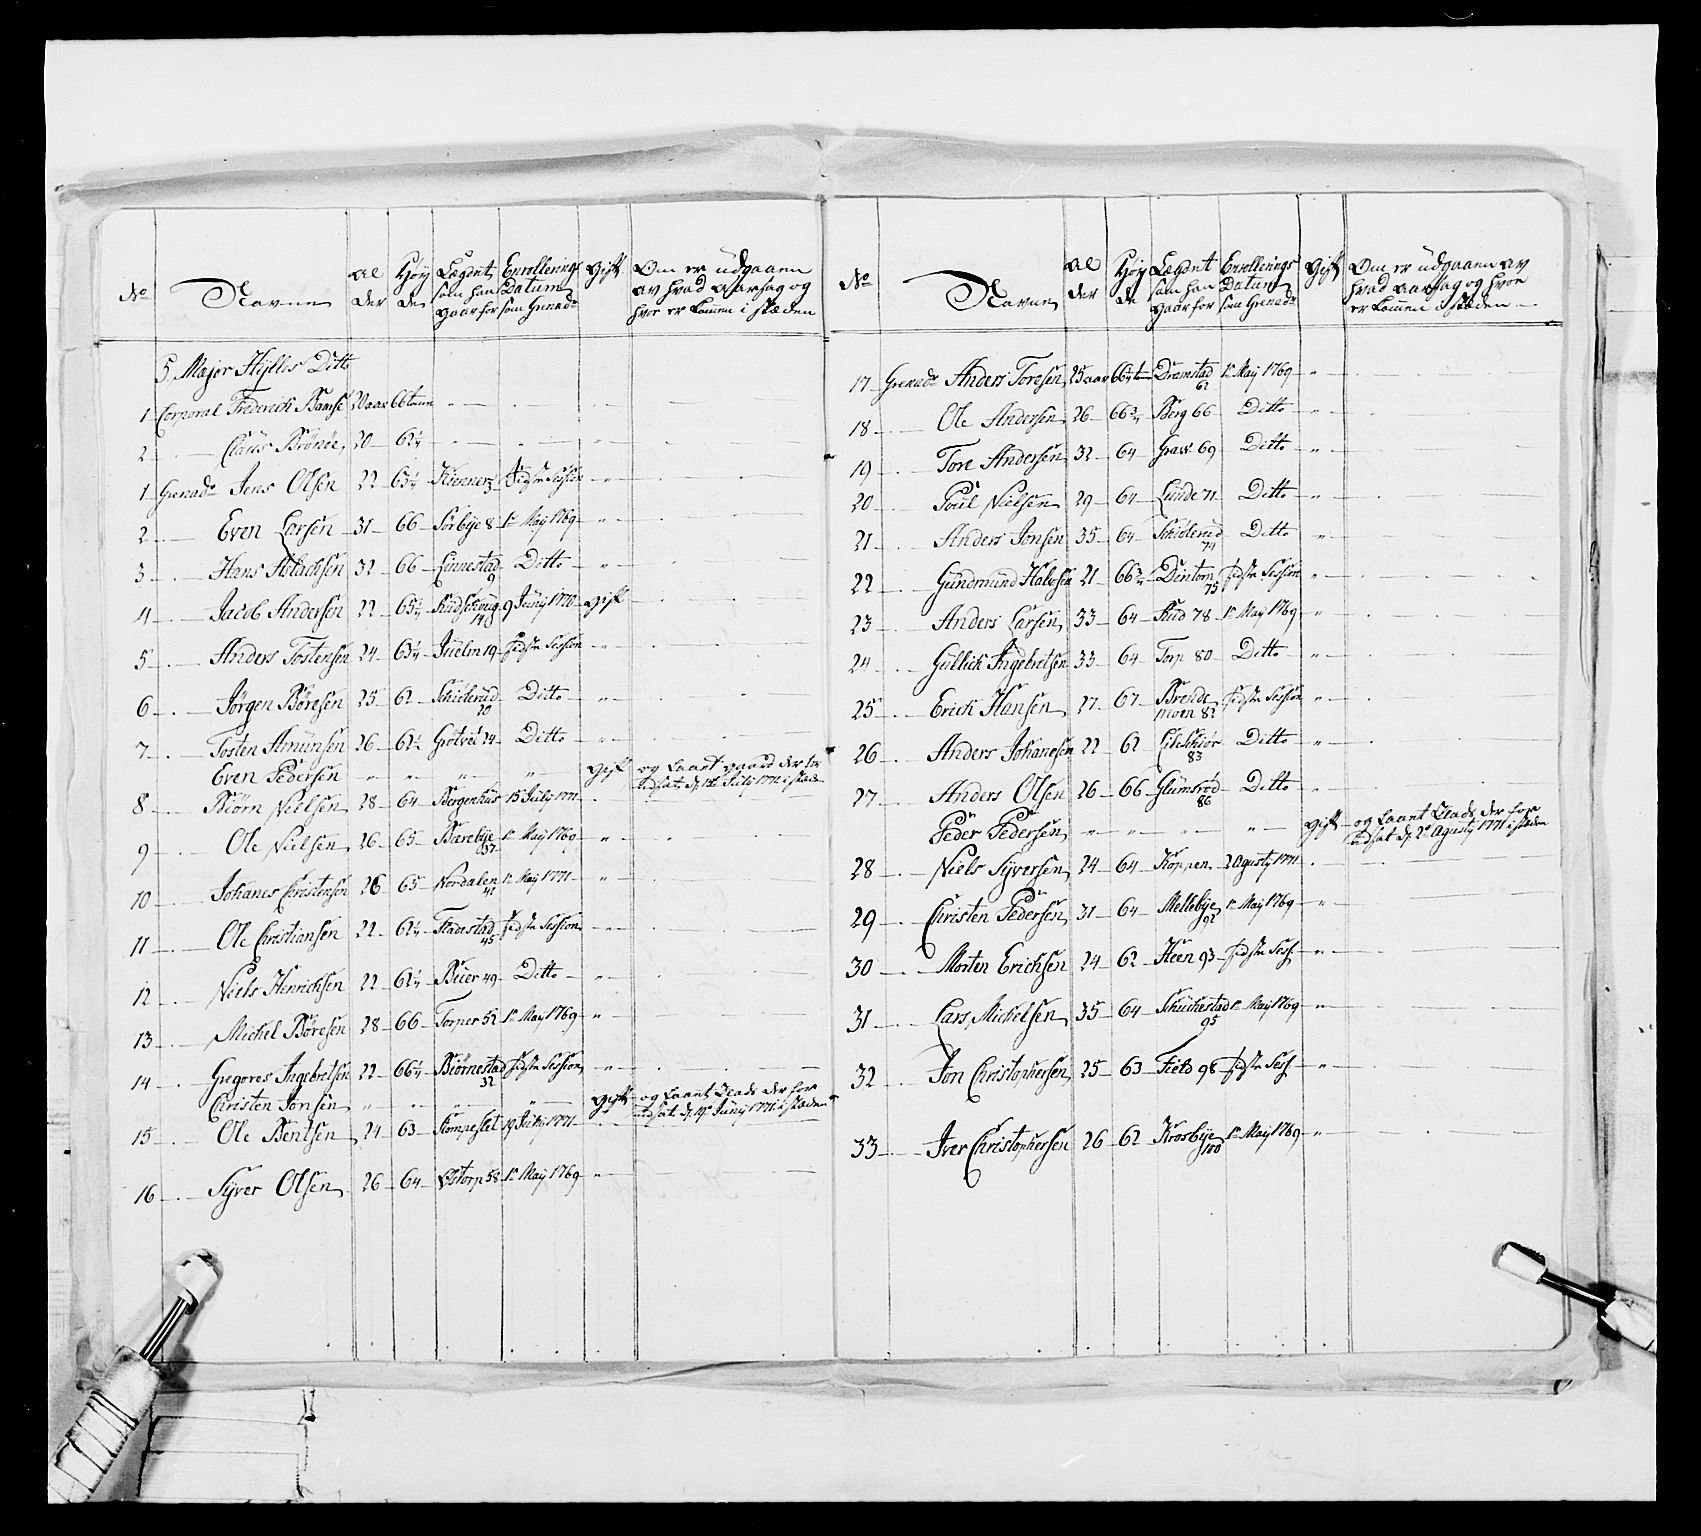 No Navne Al der Høy de Lægdet som han gaar for Enrollerings Datum som Grenadr Gift Om er udgaaen av hvad aarsag og hvor er kommen i stæden
5 Major Hylles Ditto
1 Corporal Frederich Baarse 20 aar 66 tomr
2 Claus Brönöe 20 62½
1 Grenadr Jens Olsen 22 63½ Kienner 3 Sidste Session
2 Even Larsen 31 66 Sörbye 8 1te May 1769
3 Hans Ablachsen 32 66 Linnestad 9 Ditto
4 Jacob Andersen 22 65½ Rudschoug 14 9 Junij 1770 Gift
5 Anders Tostensen 24 63½ Juelin 19 sidste Session
6 Jörgen Böresen 25 62 Schiölerud 20 Ditto
7 Tosten Amunsen 26 62½ Grötvet 24 Ditto
Even Pedersen Gift og Laant gaard der for udsat d. 15de July 1771 i stæden
8 Biörn Nielsen 28 64 Bergenhus 15 July 1771
9 Ole Nielsen 26 65 Barebye 37 1te May 1769
10 Johanes Christensen 26 65 Nordalen 41 1te May 1771
11 Ole Christiansen 22 62½ Fladestad 45 sidste Session
12 Niels Henrichsen 22 62½ Buer 49 Ditto
13 Michel Böresen 28 66 Torper 52 1te May 1769
14 Gregores Ingebretsen 22 66½ Biörnestad 32 sidste Session
Christen Jonsen Gift og Laant Plads der for udsat d. 19de Junij 1771 i stæden
15 Ole Bentsen 24 63 Stompeslet 19 July 1771
16 Syver Olsen 26 64 Østorp 58 1te May 1769
No Navne Al der Høy de Lægdet som han gaar for Enrollerings Datum som Grenadr Gift Om er udgaaen av hvad aarsag og hvor er kommen i stæden
17 Grenadr Anders Toresen 25 aar 66½ tom Dramstad 62 1te May 1769
18 Ole Andersen 26 66¾ Berg 66 Ditto
19 Tore Andersen 32 64 Graw 69 Ditto
20 Poul Nielsen 29 64 Lunde 71 Ditto
21 Anders Jonsen 35 64 Schiölerud 74 Ditto
22 Gundmund Halvsen 21 66¾ Dintorp 75 sidste Session
23 Anders Larsen 33 64 Rud 78 1te May 1769
24 Gullick Ingebretsen 33 64 Torp 80 Ditto
25 Erich Hansen 27 67 Brende moen 82 sidste Session
26 Anders Johanesen 22 62 Eileschiør 83 Ditto
27 Anders Olsen 26 66 Glumsrød 86 Ditto
Peder Pedersen Gift og Laant Plads der for udsat d. 2de Agusty 1771 i stæden
28 Niels Syversen 24 64 Koppen 2 Agusty 1771
29 Christen Pedersen 31 64 Mellebye 92 1te May 1769
30 Morten Erichsen 24 62 Heen 93 sidste Sess
31 Lars Michelsen 35 64 Schuchestad 95 1te May 1769
32 Jon Christophersen 25 63 Field 98 sidste Sess
33 Iver Christophersen 26 62 Krosbye 100 1te May 1769